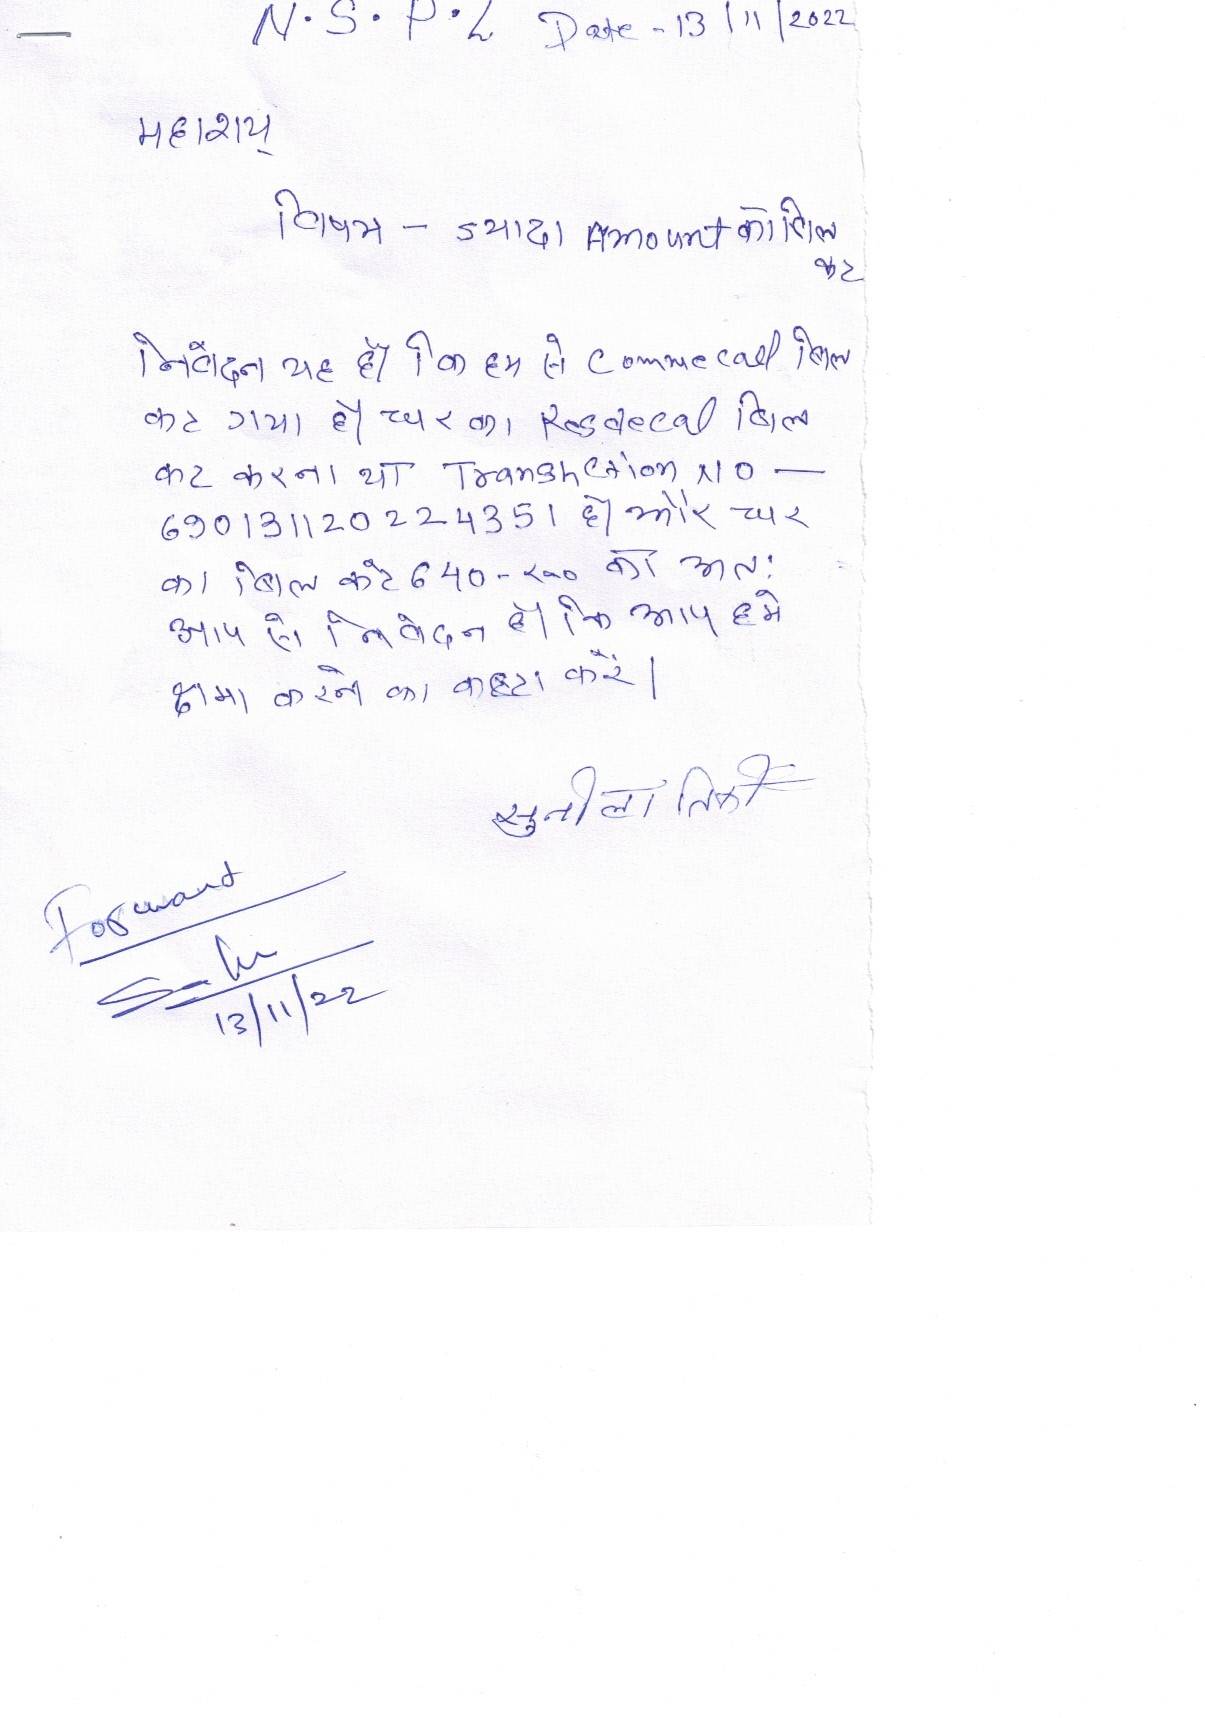 N.S.P.L Date - 13/11/2022
महाशय्
विषय - ज्यादा Amount को बिल
कट
निवेदन यह है कि हम से Commecall बिल
कट गया है घर का Resdecal बिल
कट करना था Transhction NO -
690131120224351 है और घर
का बिल कटे 640- को अतः
आप से निवेदन है कि आप हमे
क्षमा करने का कष्टा करें।
सुनीला तिर्की
Forward
13/11/22